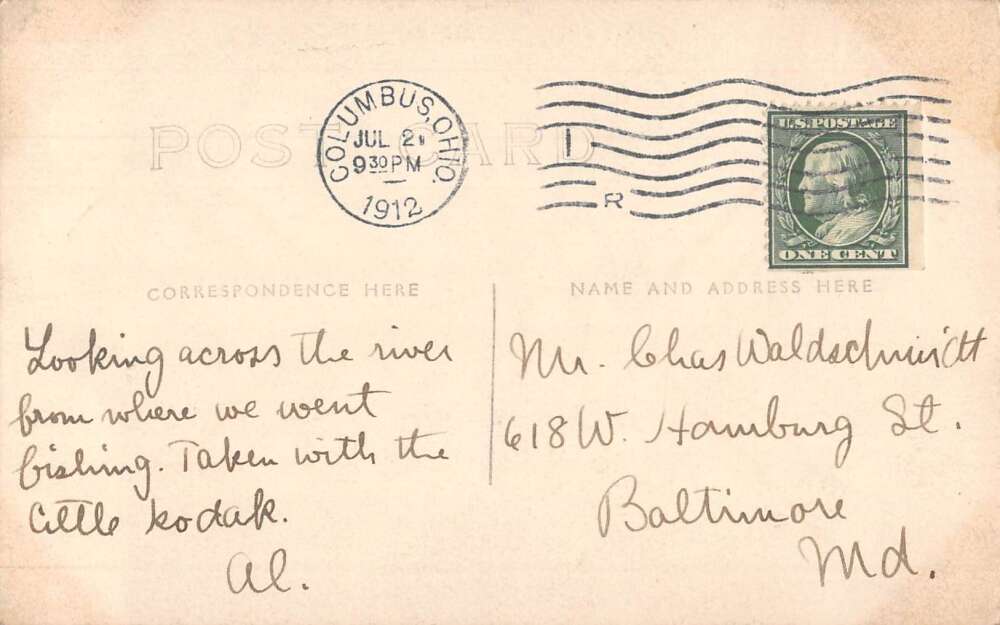 POST CARD
COLUMBUS, OHIO.
JUL 21
9 30 PM
1912
1
R
U.S. POSTAGE
ONE CENT
CORRESPONDENCE HERE
NAME AND ADDRESS HERE
Looking across the river
from where we went
fishing. Taken with the
little kodak.
Al.
Mr. Chas Waldschmidt
618 W. Hamburg St.
Baltimore
Md.